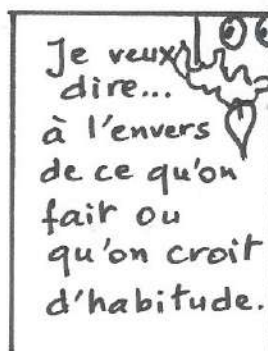 Je veux
dire...
à l'envers
de ce qu'on
fait ou
qu'on croit
d'habitude.